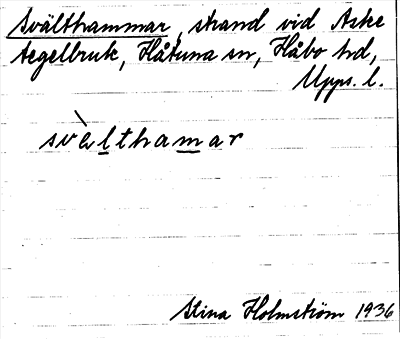 Svälthammar, strand vid Aske
tegelbruk, Håtuna sn, Håbo hd,
Upps. l.
svèlthamar
Stina Holmström 1936